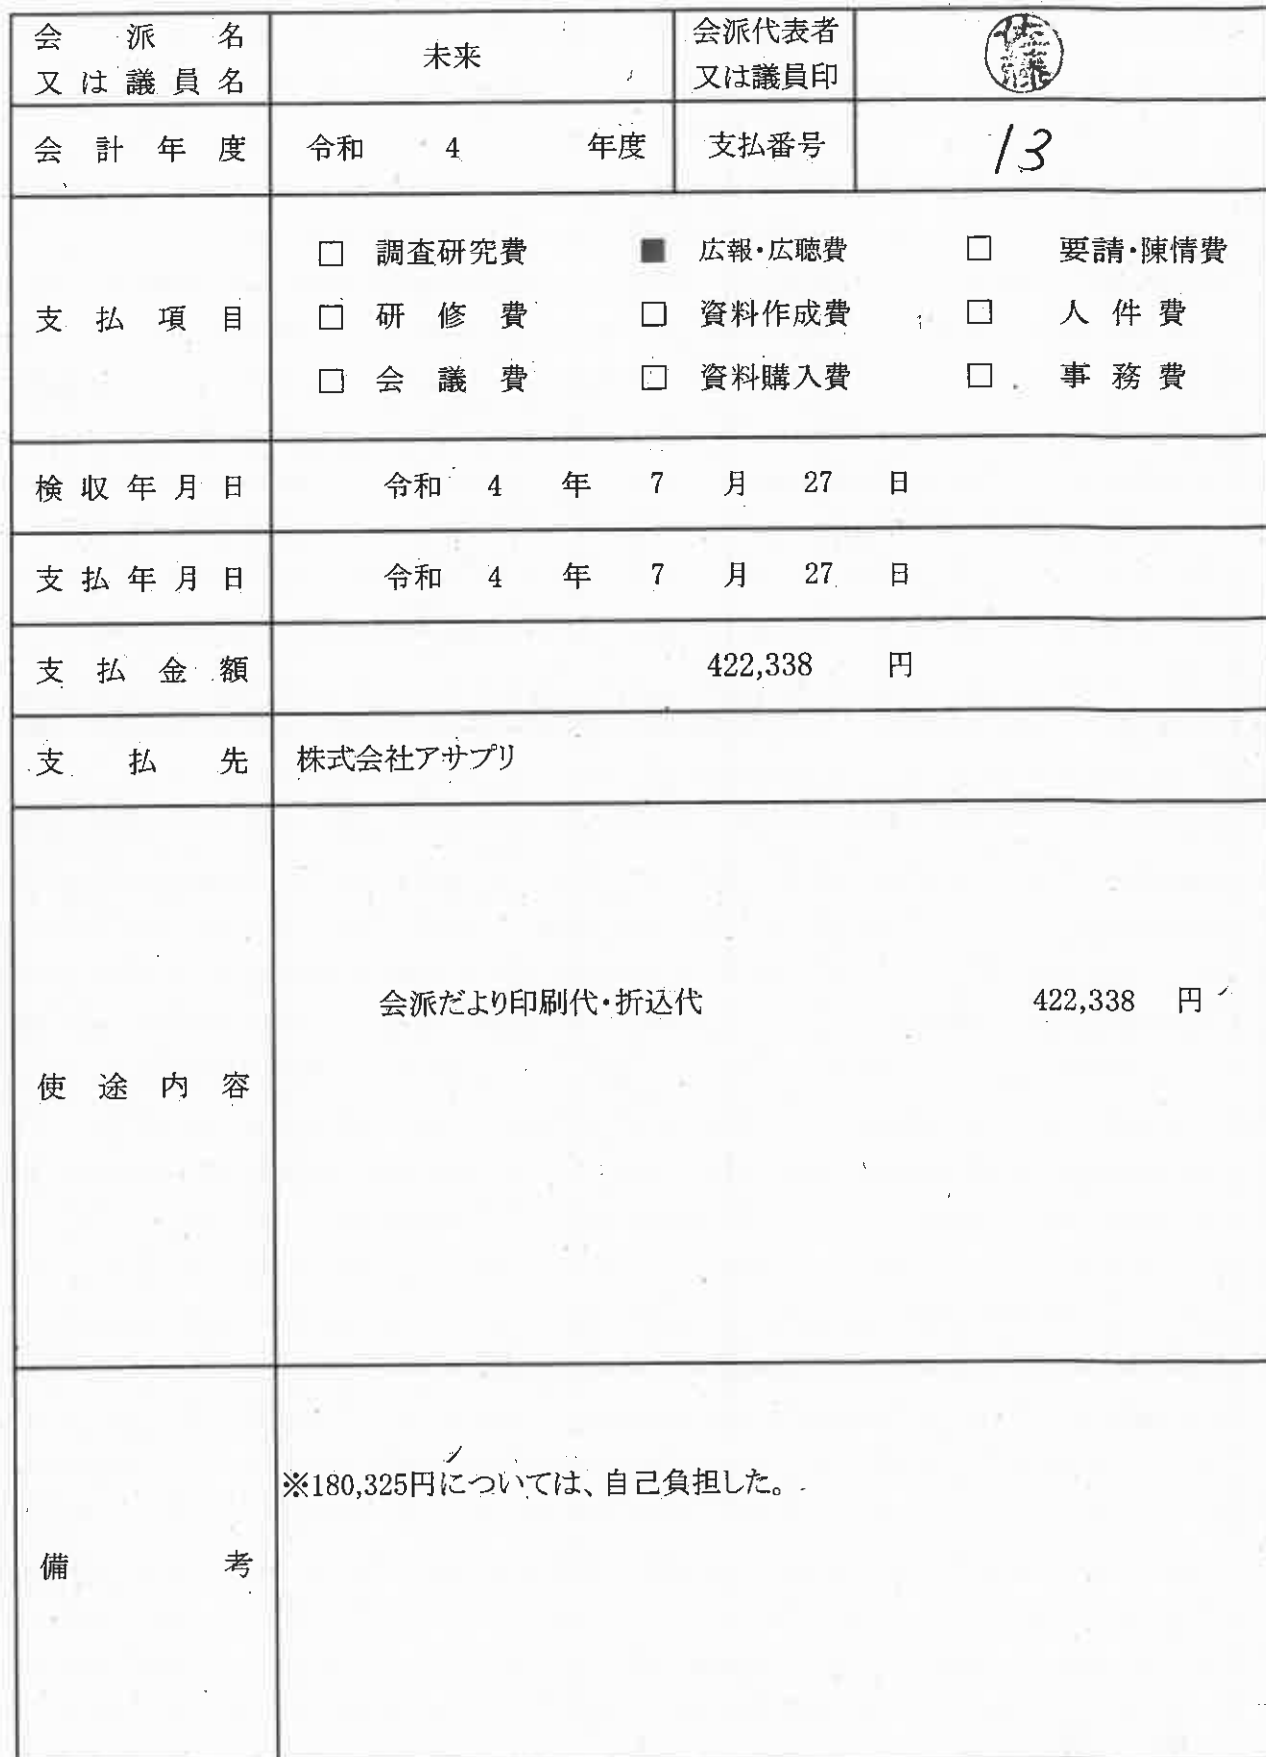 会派名 未来 会派代表者 佐藤
又は議員名 又は議員印
会計年度 令和 4 年度 支払番号 13
□ 調査研究費 ■ 広報・広聴費 □ 要請・陳情費
支払項目 □ 研修費 □ 資料作成費 □ 人件費
□ 会議費 □ 資料購入費 □ 事務費
検収年月日 令和 4 年 7 月 27 日
支払年月日 令和 4 年 7 月 27 日
支払金額 422,338 円
支払先 株式会社アサプリ
会派だより印刷代・折込代 422,338 円
使途内容
※180,325円については、自己負担した。
備考